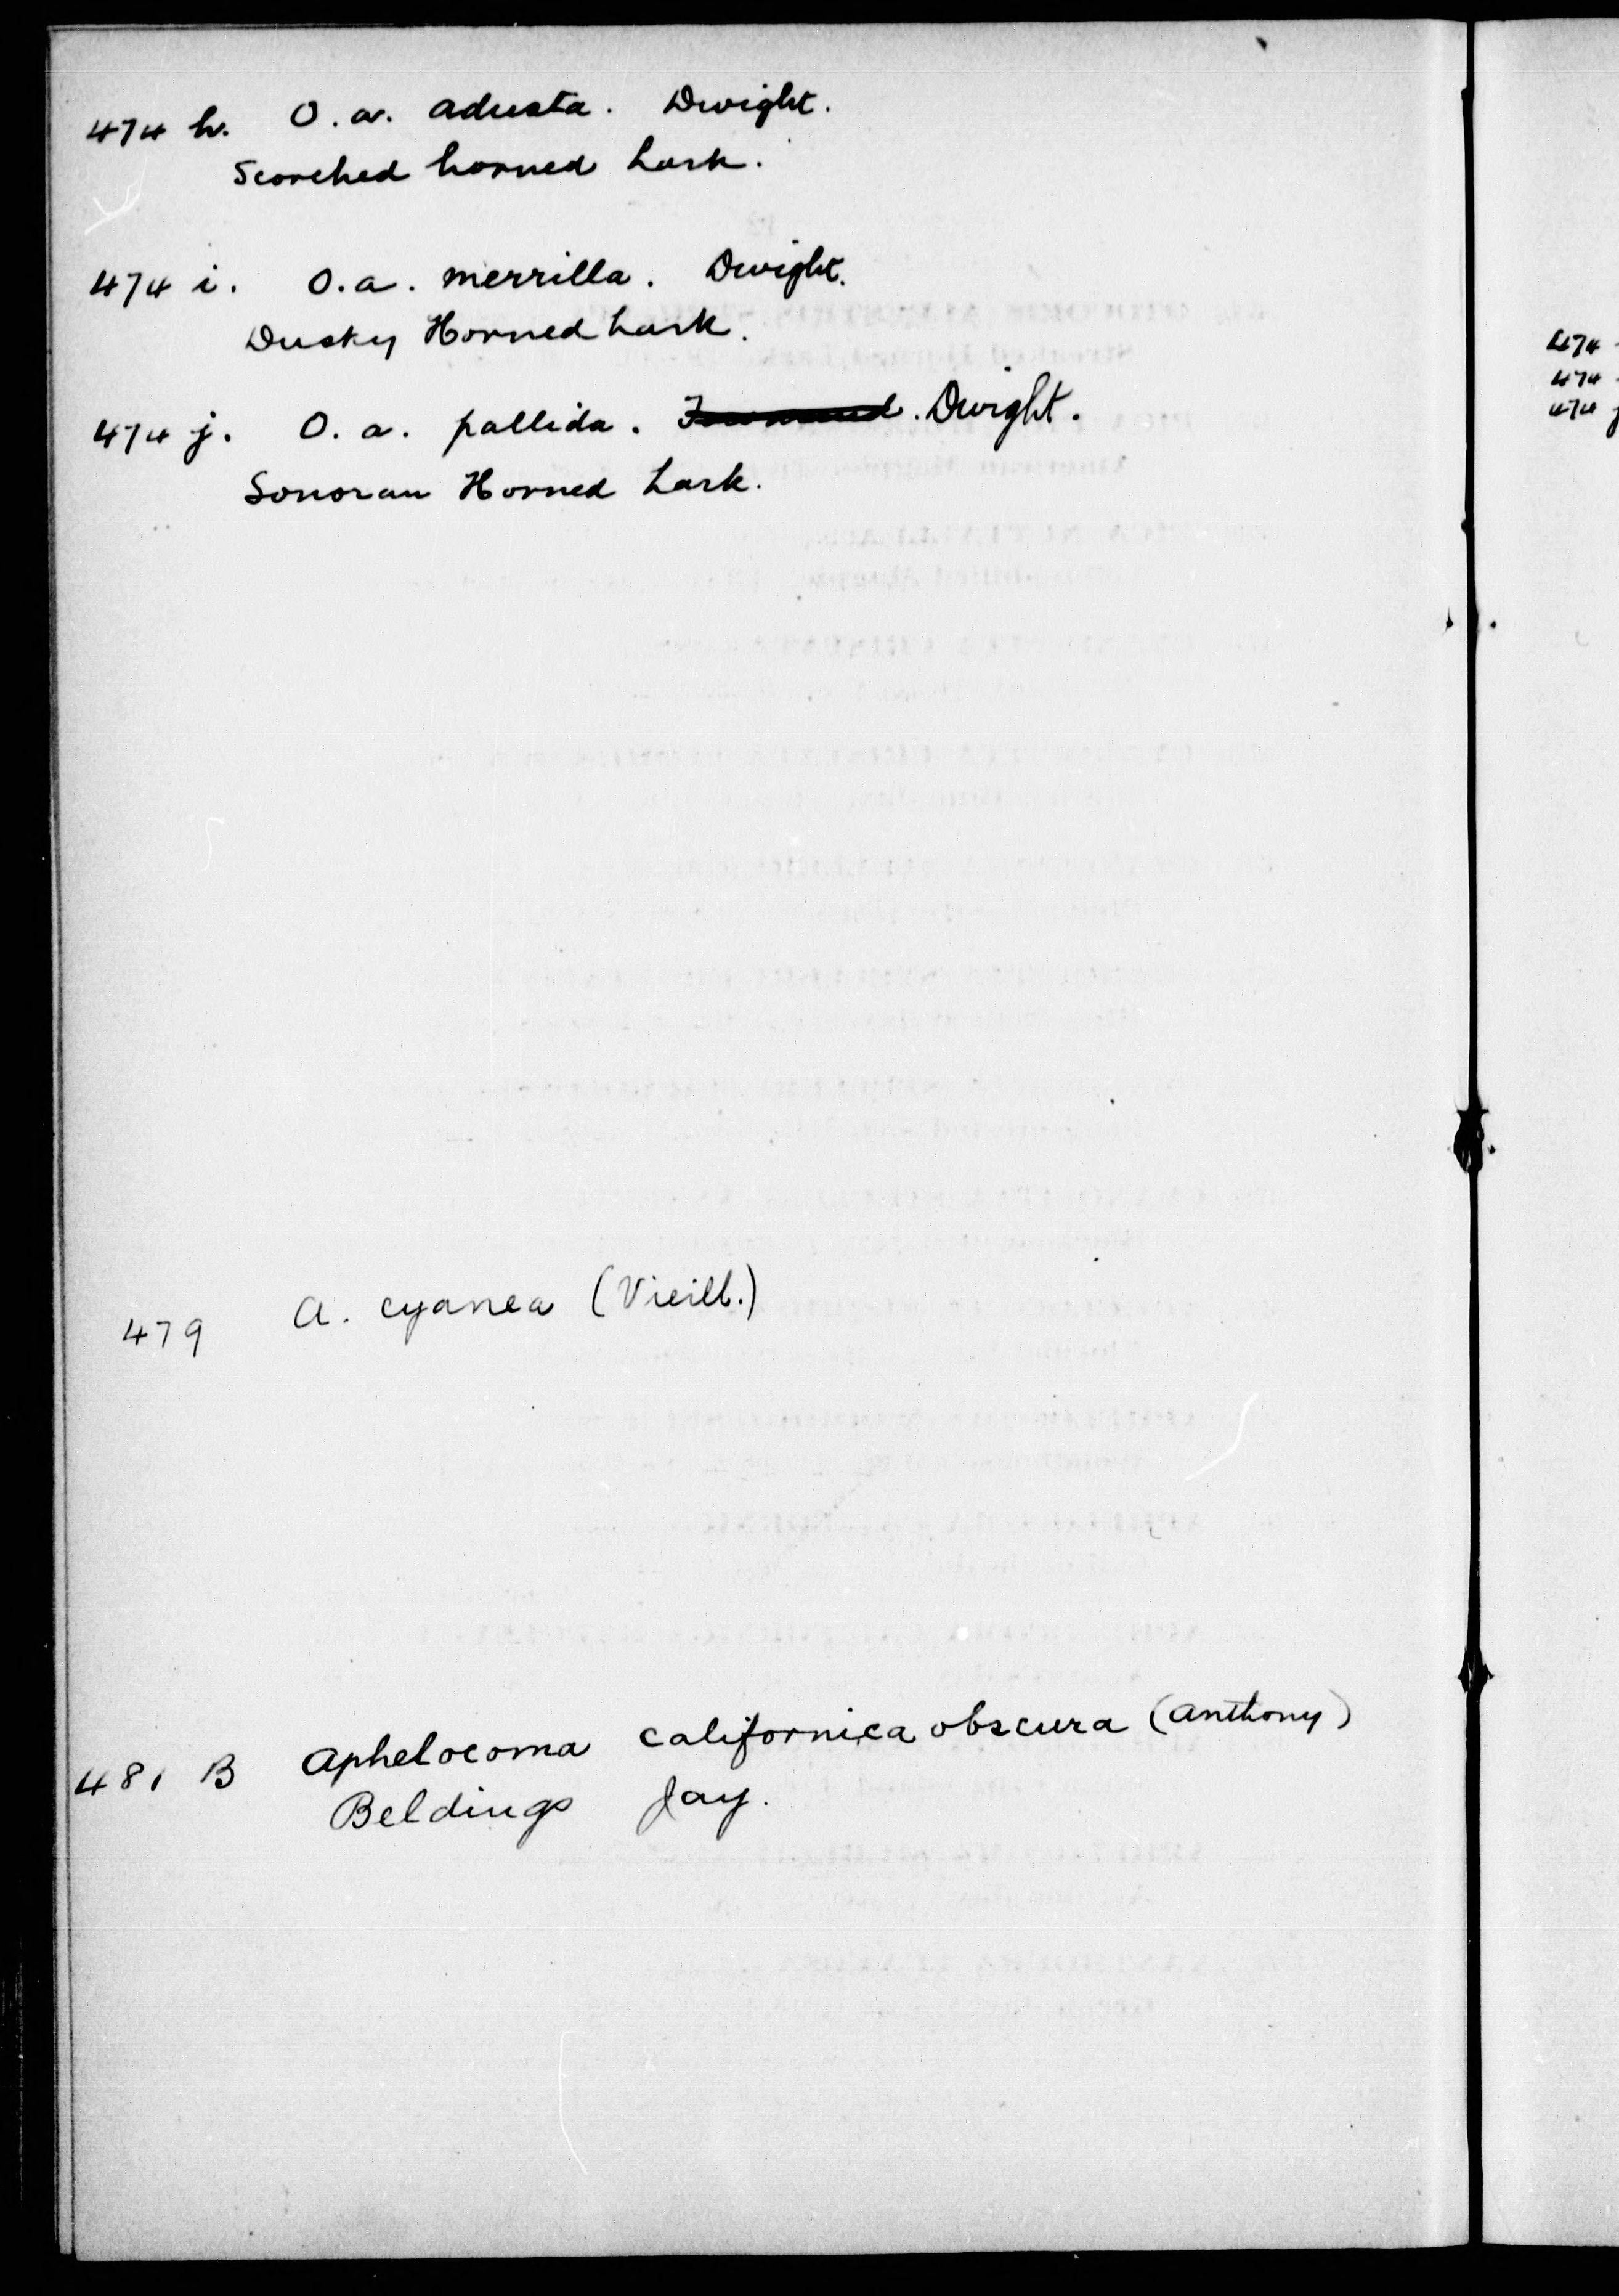 474 h. O. a. adusta. Dwight.
Scorched horned Lark.
474 i. O. a. merrilla. Dwight.
Dusky Horned Lark.
474 j. O. a. pallida. Dwight.
Sonoran Horned Lark.
479 A. cyanea (Vieill.)
481 B Aphelocoma californica obscura (Anthony)
Beldings Jay.
474
474
474 j